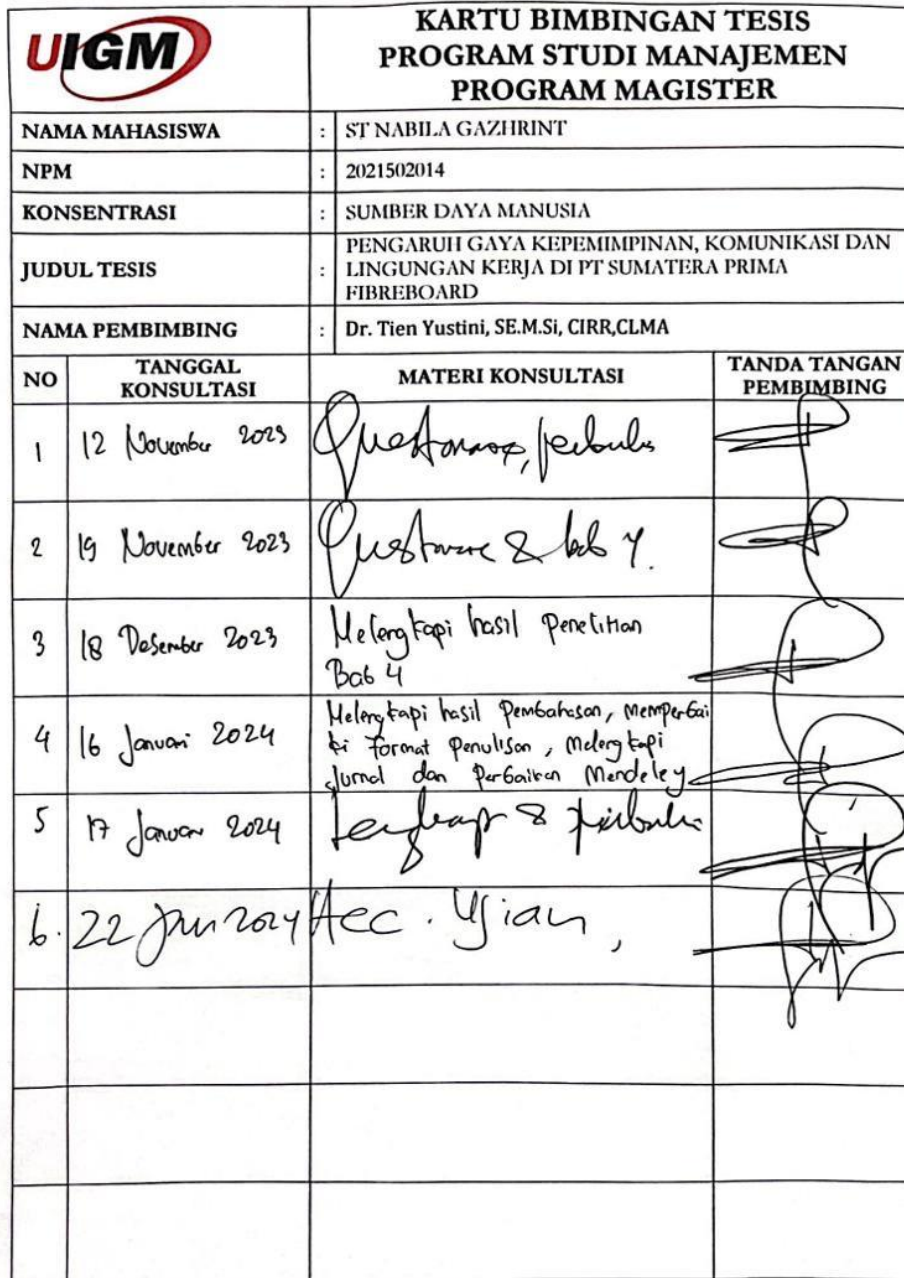 UIGM
KARTU BIMBINGAN TESIS
PROGRAM STUDI MANAJEMEN
PROGRAM MAGISTER
NAMA MAHASISWA : ST NABILA GAZHRINT
NPM : 2021502014
KONSENTRASI : SUMBER DAYA MANUSIA
JUDUL TESIS : PENGARUH GAYA KEPEMIMPINAN, KOMUNIKASI DAN
LINGUNGAN KERJA DI PT SUMATERA PRIMA
FIBREBOARD
NAMA PEMBIMBING : Dr. Tien Yustini, SE.M.Si, CIRR,CLMA
NO TANGGAL KONSULTASI MATERI KONSULTASI TANDA TANGAN PEMBIMBING
1 12 November 2023
2 19 November 2023 & bab 4.
3 18 Desember 2023 Melengkapi hasil Penelitian
Bab 4
4 16 Januari 2024 Melengkapi hasil Pembahasan, Memperbai
ki Format Penulisan, Melengkapi
Jurnal dan Perbaikan Mendeley
5 17 Januari 2024 &
6. 22 Jan 2024 Acc. Ujian,